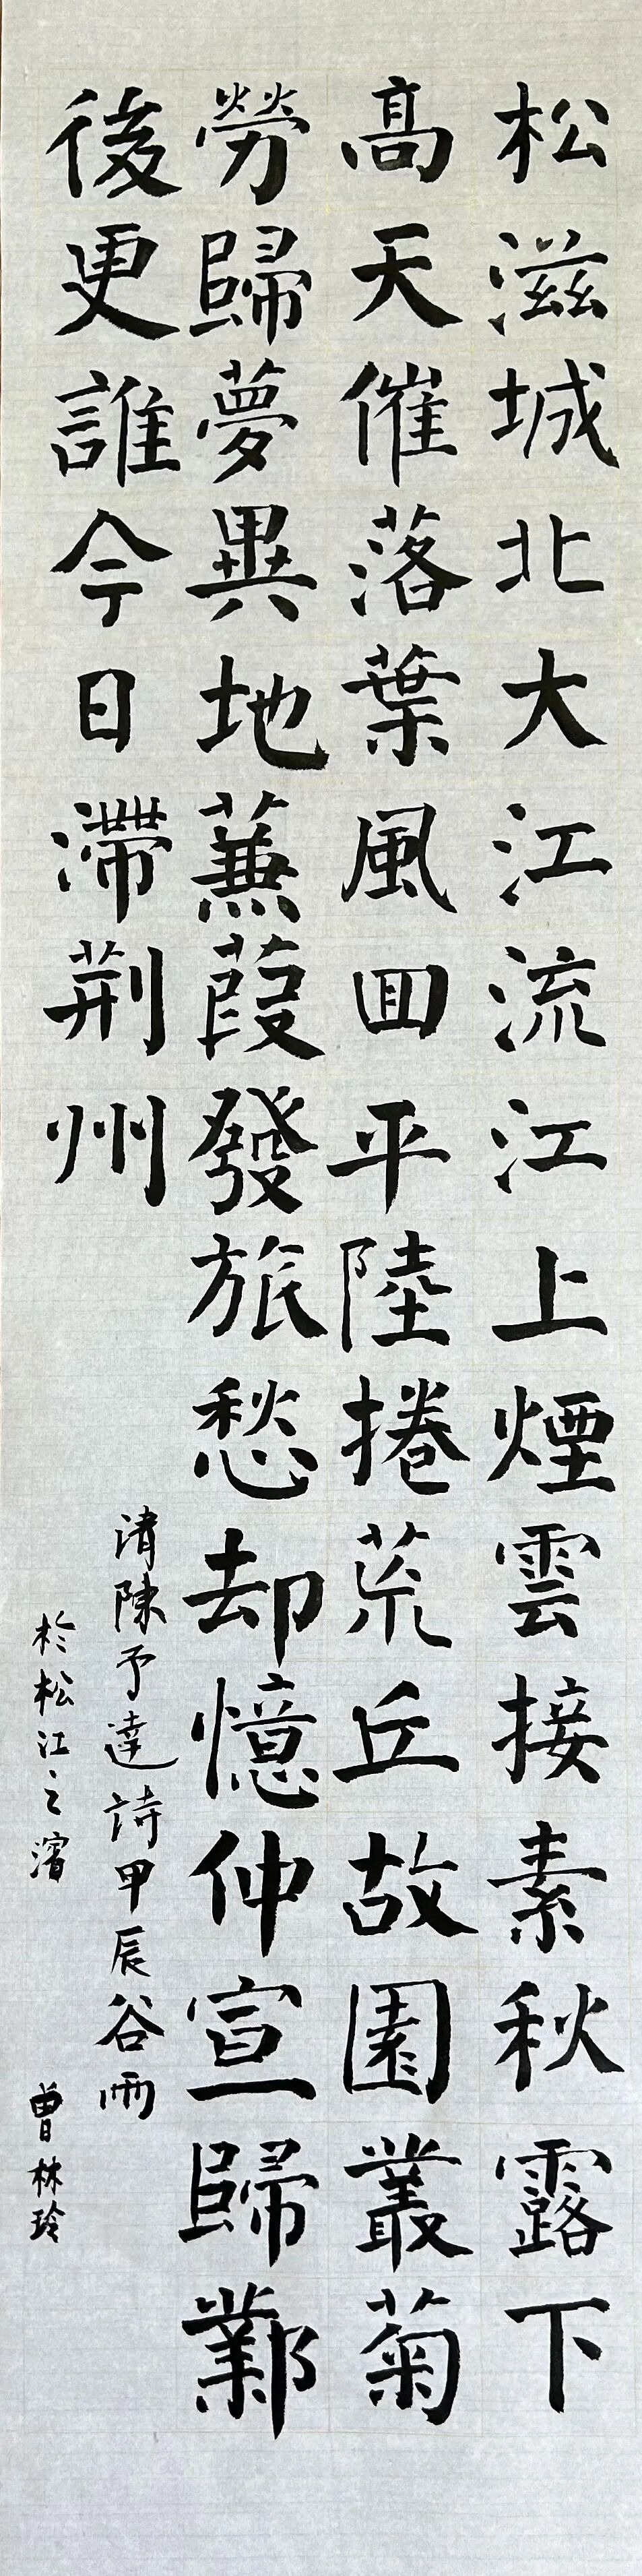 松滋城北大江流江上煙雲接素秋露下
高天催落葉風回平陸捲荒丘故園叢菊
勞歸夢異地蒹葭發旅愁却憶仲宣歸鄴
後更誰今日滯荆州
清陳予達詩甲辰谷雨
於松江之濱
曾林玲